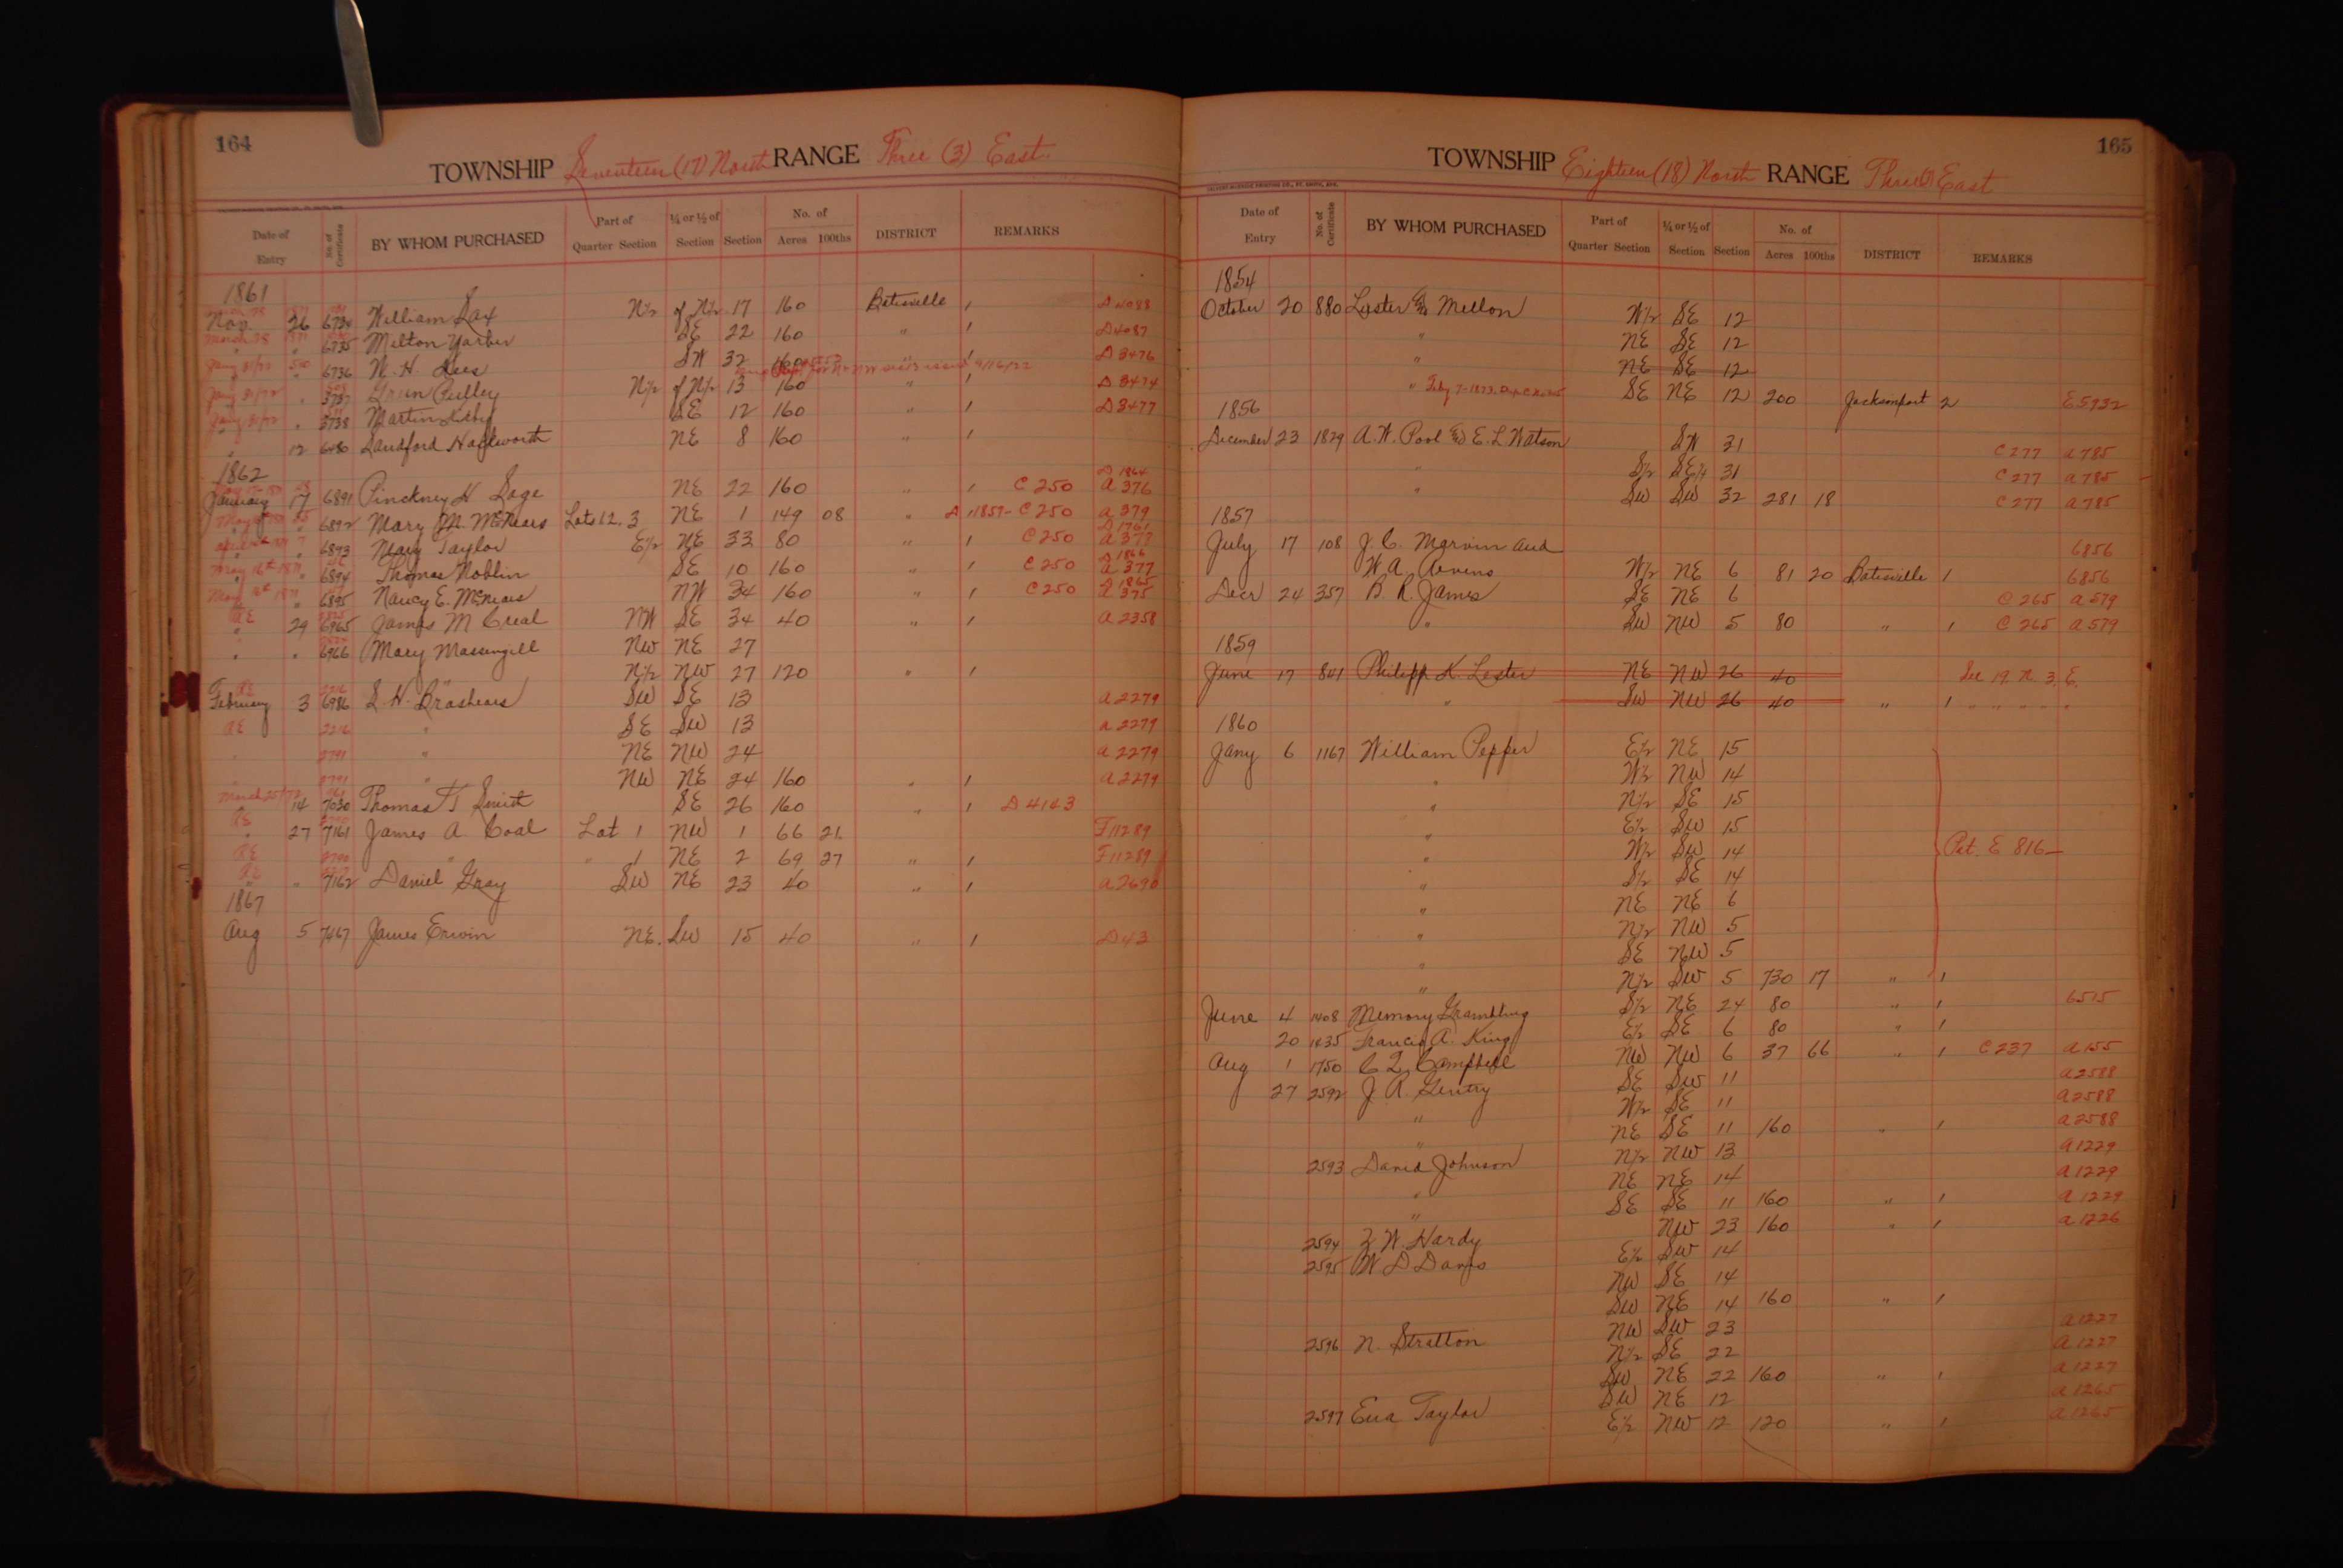 164
TOWNSHIP Seventeen (17) North RANGE Three (3) East.
Date of Entry No. of Certificate BY WHOM PURCHASED Part of Quarter Section ¼ or ½ of Section Section No. of Acres 100ths DISTRICT REMARKS
1861
Nov. 26 6734 William Sax N½ of N½ 17 160 Batesville 1 D 4088
" " 6735 Melton Yarber SE 22 160 " D 4087
" " 6736 W. H. Lees SW 32 160 " 1 D 3476
" 3737 Green Pulley N½ of N½ 13 160 " 1 D 3474
" 3738 Martin SE 12 160 " 1 D 3477
" 12 6480 Sandford Hackworth NE 8 160 " 1
1862 D 1864
January 17 6891 Pinckney H Sage NE 22 160 " 1 C 250 a 376
" 6892 Mary M. McNears Lots 1 2, 3 NE 1 149 08 " D 1857- C 250 a 379
D 1761
" " 6893 Taylor E½ NE 33 80 " 1 C 250 a 377
D 1866
May 16th 1871 " 6894 Thomas Noblin SE 10 160 " 1 C 250 a 377
D 1865
" 6895 Nancy E. McNears NW 34 160 " 1 C 250 a 375
RE
" 29 6965 James M Creal NW SE 34 40 " 1 a 2358
" " 6966 Mary Massengill NW NE 27
N½ NW 27 120 " 1
RE 2216
February 3 6986 S. H. Brashears SW SE 13 a 2279
RE 2216 " SE SW 13 a 2279
" 2791 " NE NW 24 a 2279
" 2791 " NW NE 24 160 " 1 a 2279
March 25/72
14 7030 Thomas T Smith SE 26 160 " 1 D 4143
RE
" 27 7161 James A. Coal Lot 1 NW 1 66 21 F 11289
RE 2790 " " 1 NE 2 69 27 " 1 F 11289
RE
" " 7162 Daniel Gray SW NE 23 40 " 1 a 2690
1867
Aug 5 7467 James Erwin NE. SW 15 40 " 1 D 43
165
TOWNSHIP Eighteen (18) North RANGE Three (3) East
Date of Entry No. of Certificate BY WHOM PURCHASED Part of Quarter Section ¼ or ½ of Section Section No. of Acres 100ths DISTRICT REMARKS
1854
October 20 880 Lester & Mellon W½ SE 12
" NE SE 12
" NE SE 12
" SE NE 12 200 Jacksonport 2 E 5932
1856
December 23 1829 A. W. Pool & E. L. Watson SW 31 C 277 a 785
" S½ SE¼ 31 C 277 a 785
" SW SW 32 281 18 C 277 a 785
1857
July 17 108 J. C. Marvin and 6856
W. A. Avens W½ NE 6 81 20 Batesville 1 6856
Decr 24 357 B. R. James SE NE 6 C 265 a 579
" SW NW 5 80 " 1 C 265 a 579
1859
June 17 841 Philipp K. Lester NE NW 26 40 See 19. N. 3. E.
" SW NW 26 40 " 1 " " " " "
1860
Jany 6 1167 William Pepper E½ NE 15
" W½ NW 14
" N½ SE 15
" E½ SW 15
" W½ SW 14 Pat. E 816—
" S½ SE 14
" NE NE 6
" N½ NW 5
" SE NW 5
" N½ SW 5 730 17 " 1
June 4 1408 Memory Grambling S½ NE 24 80 " 1 6515
20 1435 Francis A. King E½ SE 6 80 " 1
Aug 1 1750 C. Q. Campbell NW NW 6 37 66 " 1 C 237 a 155
27 2592 J. R. Gentry SE SW 11 a 2588
" W½ SE 11 a 2588
" NE SE 11 160 " 1 a 2588
2593 David Johnson N½ NW 13 a 1229
" NE NE 14 a 1229
" SE SE 11 160 " 1 a 1229
2594 Z. W. Hardy NW 23 160 " 1 a 1226
2595 W D Davis E½ SW 14
NW SE 14
SW NE 14 160 " 1
2596 N. Stratton NW SW 23 a 1227
N½ SE 22 a 1227
SW NE 22 160 " 1 a 1227
2597 Eua Taylor SW NE 12 a 1265
E½ NW 12 120 " 1 a 1265